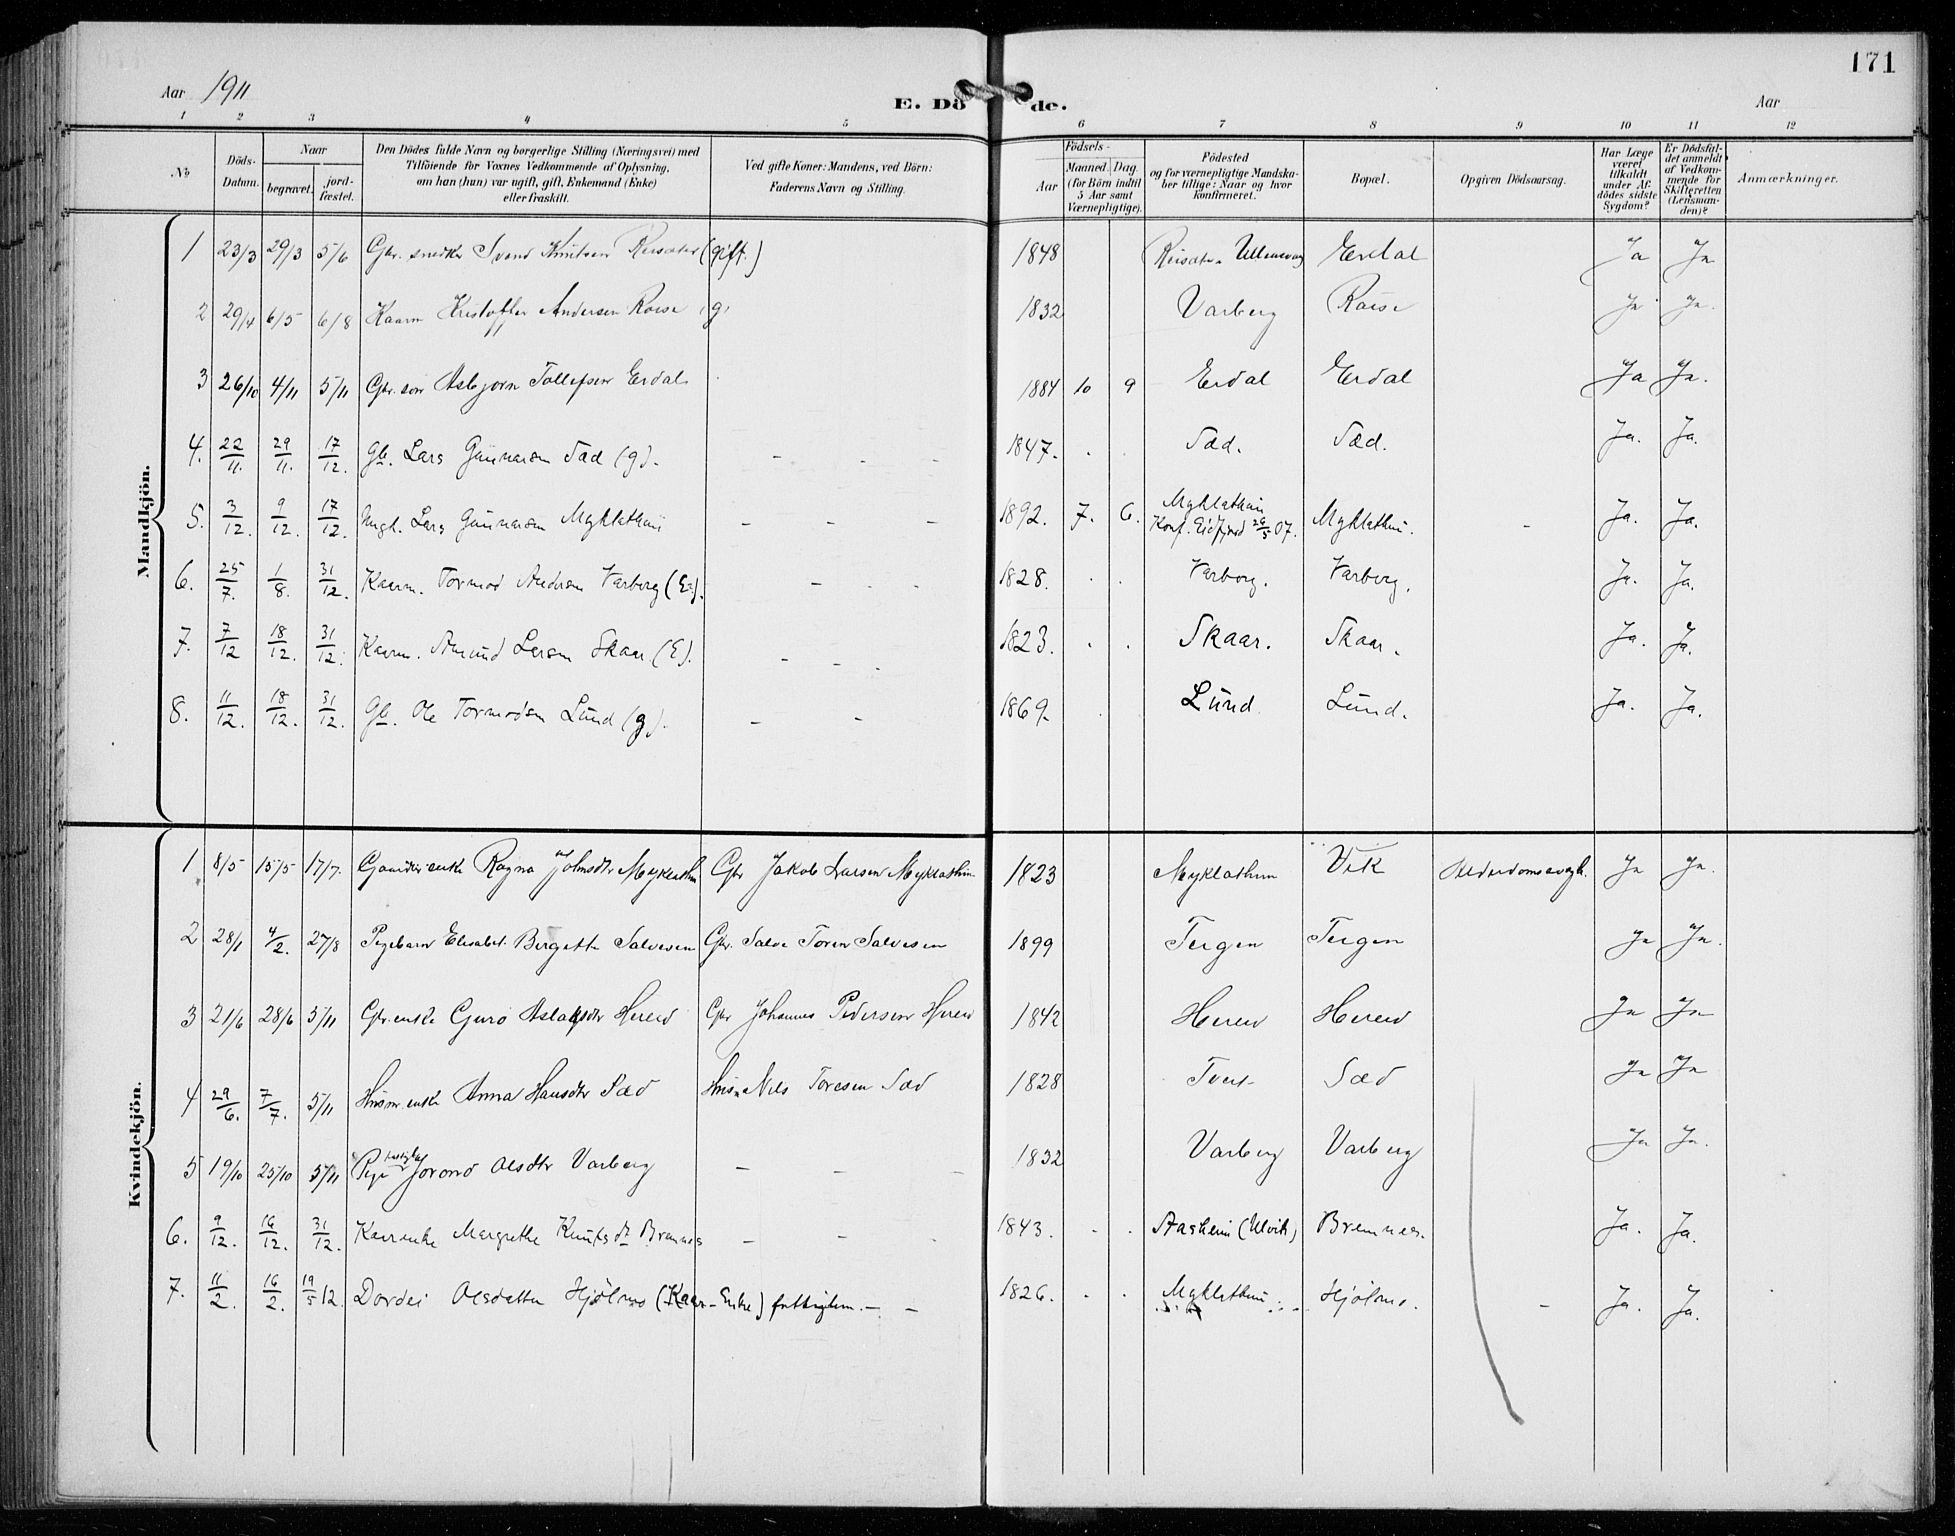 171
Aar 1911
E. Dö de.
Aar
1 2 3 4 5 6 7 8 9 10 11 12
№
Döds-Datum.
Naar
begravet.
jord-fæstet.
Den Dödes fulde Navn og borgerlige Stilling (Næringsvei) med
Tilföiende for Voxnes Vedkommende af Oplysning,
om han (hun) var ugift, gift, Enkemand (Enke)
eller fraskilt.
Ved gifte Koner: Mandens, ved Börn:
Faderens Navn og Stilling.
Födsels-
Aar
Maaned. Dag.
(for Börn indtil
5 Aar samt
Værnepligtige).
Födested
og for værnepligtige Mandska-
ber tillige: Naar og hvor
konfirmeret.
Bopæl.
Opgiven Dödsaarsag.
Har Læge
været
tilkaldt
under Af-
dödes sidste
Sygdom?
Er Dödsfal-
det anmeldt
af Vedkom-
mende for
Skifteretten
(Lensman-
den)?
Anmærkninger.
Mandkjön.
1 23/3 29/3 5/6 Gbr. snedker Svend Knutsen Reisæter (gift.) 1848 Reisæter Ullensvang Erdal Ja Ja
2 29/4 6/5 6/8 Kaarm Kristoffer Andersen Roise (g) 1832 Varberg Roise Ja Ja.
3 26/10 4/11 5/11 Gbr. søn Asbjørn Tollefsen Erdal 1884 10 9 Erdal Erdal Ja Ja.
4. 22/11. 29/11. 17/12. Gb. Lars Gunnarsen Sæd (g). - - - 1847. Sæd. Sæd. Ja. Ja.
5. 3/12. 9/12. 17/12. Ungk. Lars Gunnarsen Myklathun - - - 1892. 7. 6. Myklathun Konf. Eidfjord 26/5 07. Myklathun. - Ja. Ja.
6. 25/7. 1/8. 31/12. Kaarm. Tormod Andersen Varberg (E). - - - 1828. Varberg. Varberg. Ja. Ja.
7. 7/12 18/12. 31/12. Kaarm. Amund Larsen Skaar (E). - - - 1823. Skaar. Skaar. Ja. Ja.
8. 11/12. 18/12. 31/12. Gb. Ole Tormodsen Lund (g). - - 1869. Lund Lund. Ja. Ja.
Kvindekjön.
1 8/5 15/5 17/7. Gaardbr. enke Ragna Johnsdtr Myklathun Gbr Jakob Larsen Myklathun 1823 Myklathun Vik Alderdomssvagh. Ja Ja.
2 28/1 4/2. 27/8 Pigebarn Elisabet Bergette Salvesen Gbr. Salve Toren Salvesen 1899 Teigen Teigen Ja Ja.
3 21/6 28/6 5/11 Gbr. enke Guro Aslaksdtr Hereid Gbr Johannes Pedersen Hereid 1842 Hereid Hereid Ja Ja
4 29/6. 7/7. 5/11 Husm. enke Anna Hansdtr Sæd Husm Nils Toresen Sæd 1828 Tveit Sæd Ja Ja
5 19/10 25/10 5/11 Pige Jorond Olsdtr Varberg - - - 1832 Varberg Varberg Ja Ja.
6. 9/12. 16/12. 31/12. Kaarenke Margrethe Knutsdt Bremnes - - - 1843. Aasheim (Ulvik) Bremnes. Ja. Ja.
7. 11/2. 16/2. 19/5 12. Dordei Olsdatter Hjølmo (Kaar-Enke) fattiglem. - - 1826. Myklathun Hjølmo. - Ja. Ja.